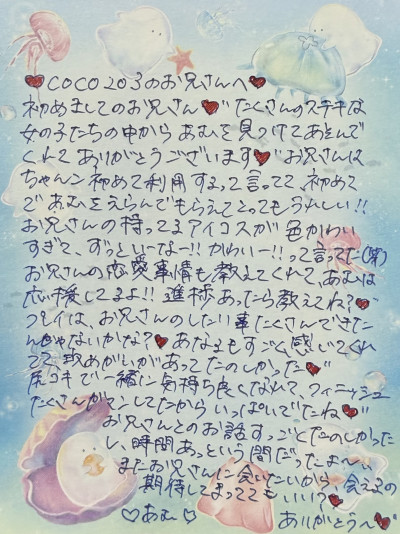 ♥COCO203のお兄さんへ♥
初めましてのお兄さん♥たくさんのステキな
女の子たちの中からあむを見つけてあそんで
くれてありがとうございます♥お兄さんは
ちゃんこ初めて利用するって言ってて、初めて
であむをえらんでもらえてとってもうれしい!!
お兄さんの持ってるアイコスが色かわい
すぎて、ずっといーなー!!かわいー!!って言ってた(笑)
お兄さんの恋愛事情も教えてくれて、あむは
応援してるよ!!進捗あったら教えてね?♥
プレイは、お兄さんのしたい事たくさんできた
んじゃないかな?♥あなるもすごく感じてくれ
てて、攻めがいがあってたのしかった♥
尻コキで一緒に気持ち良くなれて、フィニッシュ
たくさんガマンしてたからいっぱいでたね♥
お兄さんとのお話すっごくたのしかった
し、時間あっという間だったよ〜
またお兄さんに会いたいから、会えるの
期待してまっててもいい?♥
♡あむ♡ ありがとう〜♥